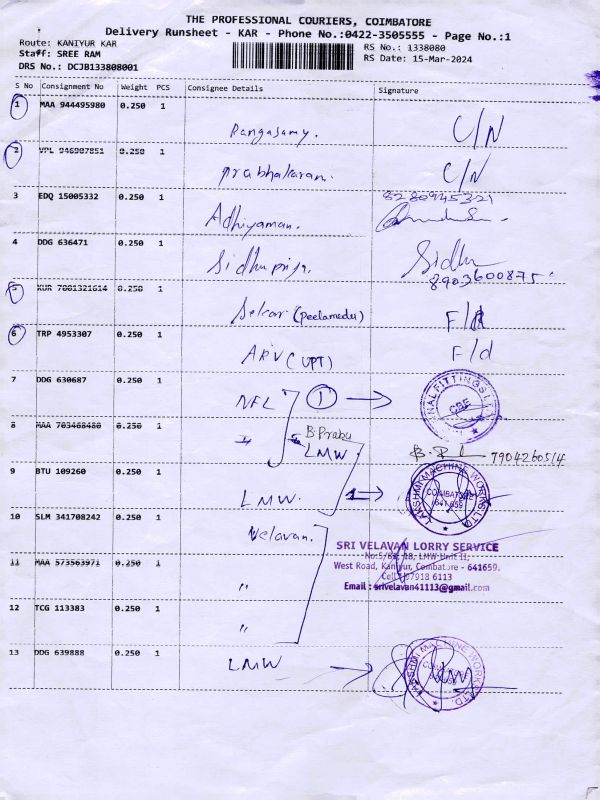 THE PROFESSIONAL COURIERS, COIMBATORE
Delivery Runsheet - KAR - Phone No.:0422-3505555 - Page No.:1
Route: KANIYUR KAR
Staff: SREE RAM
DRS No.: DCJB133808001
RS No.: 1338080
RS Date: 15-Mar-2024
S No Consignment No Weight PCS Consignee Details Signature
1 MAA 944495980 0.250 1
Rangasamy. C/N
2 VPL 946987851 0.250 1
Prabhakaran. C/N
3 EDQ 15005332 0.250 1
Adhiyaman. 8280945321
4 DDG 636471 0.250 1
Sidhupriya. Sidhu
8903600875
5 KUR 7001321614 0.250 1
Sekar (Peelamedu) F/d
6 TRP 4953307 0.250 1
ARV (UPT) F/d
7 DDG 630687 0.250 1
NFL 1
CBE
8 MAA 703468480 0.250 1
B. Prabu
LMW
7904260514
9 BTU 109260 0.250 1
LMW. 1
LAKSHMI MACHINE WORKS LTD.
COIMBATORE
641 659
10 SLM 341708242 0.250 1
Velavan.
SRI VELAVAN LORRY SERVICE
LMW Unit II,
West Road, Kaniyur, Coimbatore - 641659.
Cell : 97918 6113
Email : srivelavan41113@gmail.com
11 MAA 573563971 0.250 1
"
12 TCG 113383 0.250 1
"
13 DDG 639888 0.250 1
LMW
LAKSHMI MACHINE WORKS LTD.